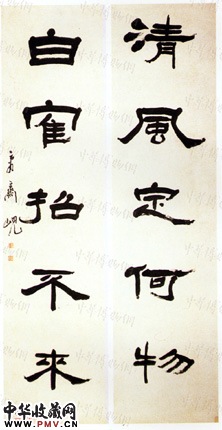 清風定何物
白寉招不來
中华收藏网
WWW.PMV.CN